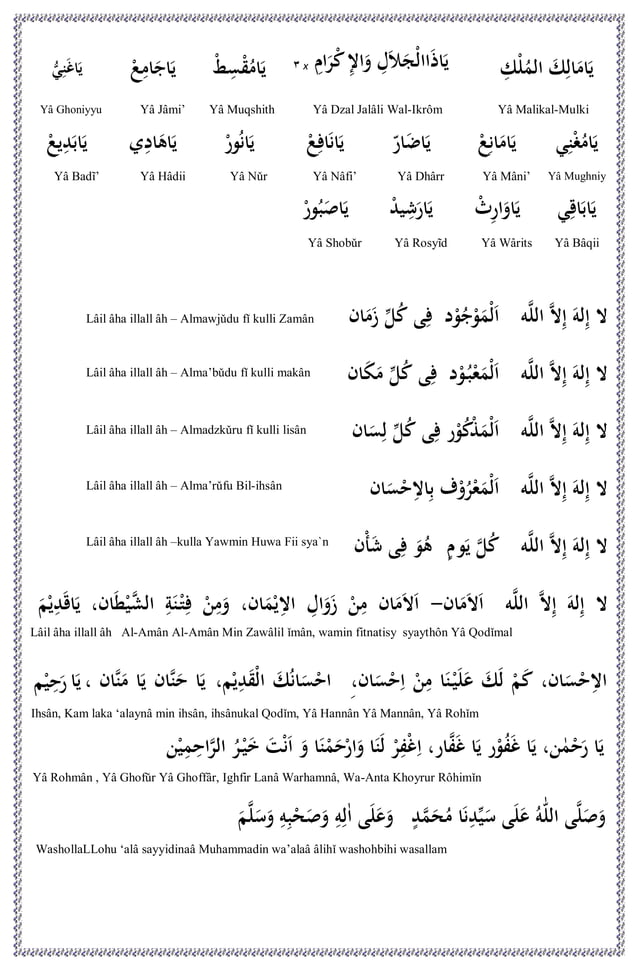 يَامَالِكَ المُلْكِ يَاذَاالْجَلاَلِ وَالإِكْرَامِ x ٣ يَامُقْسِطْ يَاجَامِعْ يَاغَنِيُّ
Yâ Ghoniyyu Yâ Jâmi’ Yâ Muqshith Yâ Dzal Jalâli Wal-Ikrôm Yâ Malikal-Mulki
يَامُغْنِي يَامَانِعْ يَاضَارّ يَانَافِعْ يَانُورْ يَاهَادِي يَابَدِيعْ
Yâ Badî’ Yâ Hâdii Yâ Nŭr Yâ Nâfi’ Yâ Dhârr Yâ Mâni’ Yâ Mughniy
يَابَاقِي يَاوَارِثْ يَارَشِيدْ يَاصَبُورْ
Yâ Shobŭr Yâ Rosyĭd Yâ Wârits Yâ Bâqii
لا إِلهَ إِلاَّ اللَّه اَلْمَوْجُوْد فِى كُلِّ زَمَان
Lâil âha illall âh – Almawjŭdu fĭ kulli Zamân
لا إِلهَ إِلاَّ اللَّه اَلْمَعْبُوْد فِى كُلِّ مَكَان
Lâil âha illall âh – Alma’bŭdu fĭ kulli makân
لا إِلهَ إِلاَّ اللَّه اَلْمَذْكُوْر فِى كُلِّ لِسَان
Lâil âha illall âh – Almadzkŭru fĭ kulli lisân
لا إِلهَ إِلاَّ اللَّه اَلْمَعْرُوْف بِالاِحْسَان
Lâil âha illall âh – Alma’rŭfu Bil-ihsân
لا إِلهَ إِلاَّ اللَّه كُلَّ يَومٍ هُوَ فِى شَأْن
Lâil âha illall âh –kulla Yawmin Huwa Fii sya`n
لا إِلهَ إِلاَّ اللَّه اَلاَمَان– اَلاَمَان مِنْ زَوَالِ الاِيْمَان، وَمِنْ فِتْنَةِ الشَّيْطَان، يَاقَدِيْمَ
Lâil âha illall âh Al-Amân Al-Amân Min Zawâlil ĭmân, wamin fitnatisy syaythôn Yâ Qodĭmal
الاِحْسَان، كَمْ لَكَ عَلَيْنَا مِنْ اِحْسَان، اِحْسَانُكَ الْقَدِيْم، يَا حَنَّان يَا مَنَّان ، يَا رَحِيْم
Ihsân, Kam laka ‘alaynâ min ihsân, ihsânukal Qodĭm, Yâ Hannân Yâ Mannân, Yâ Rohĭm
يَا رَحْمٰن، يَا غَفُوْر يَا غَفَّار، اِغْفِرْ لَنَا وَارْحَمْنَا وَ اَنْتَ خَيْرُ الرَّاحِمِيْن
Yâ Rohmân , Yâ Ghofŭr Yâ Ghoffâr, Ighfir Lanâ Warhamnâ, Wa-Anta Khoyrur Rôhimĭn
وَصَلَّى اللّٰهُ عَلَى سَيِّدِنَا مُحَمَّدٍ وَعَلَى اٰلِهِ وَصَحْبِهِ وَسَلَّمَ
WashollaLLohu ‘alâ sayyidinaâ Muhammadin wa’alaâ âlihĭ washohbihi wasallam